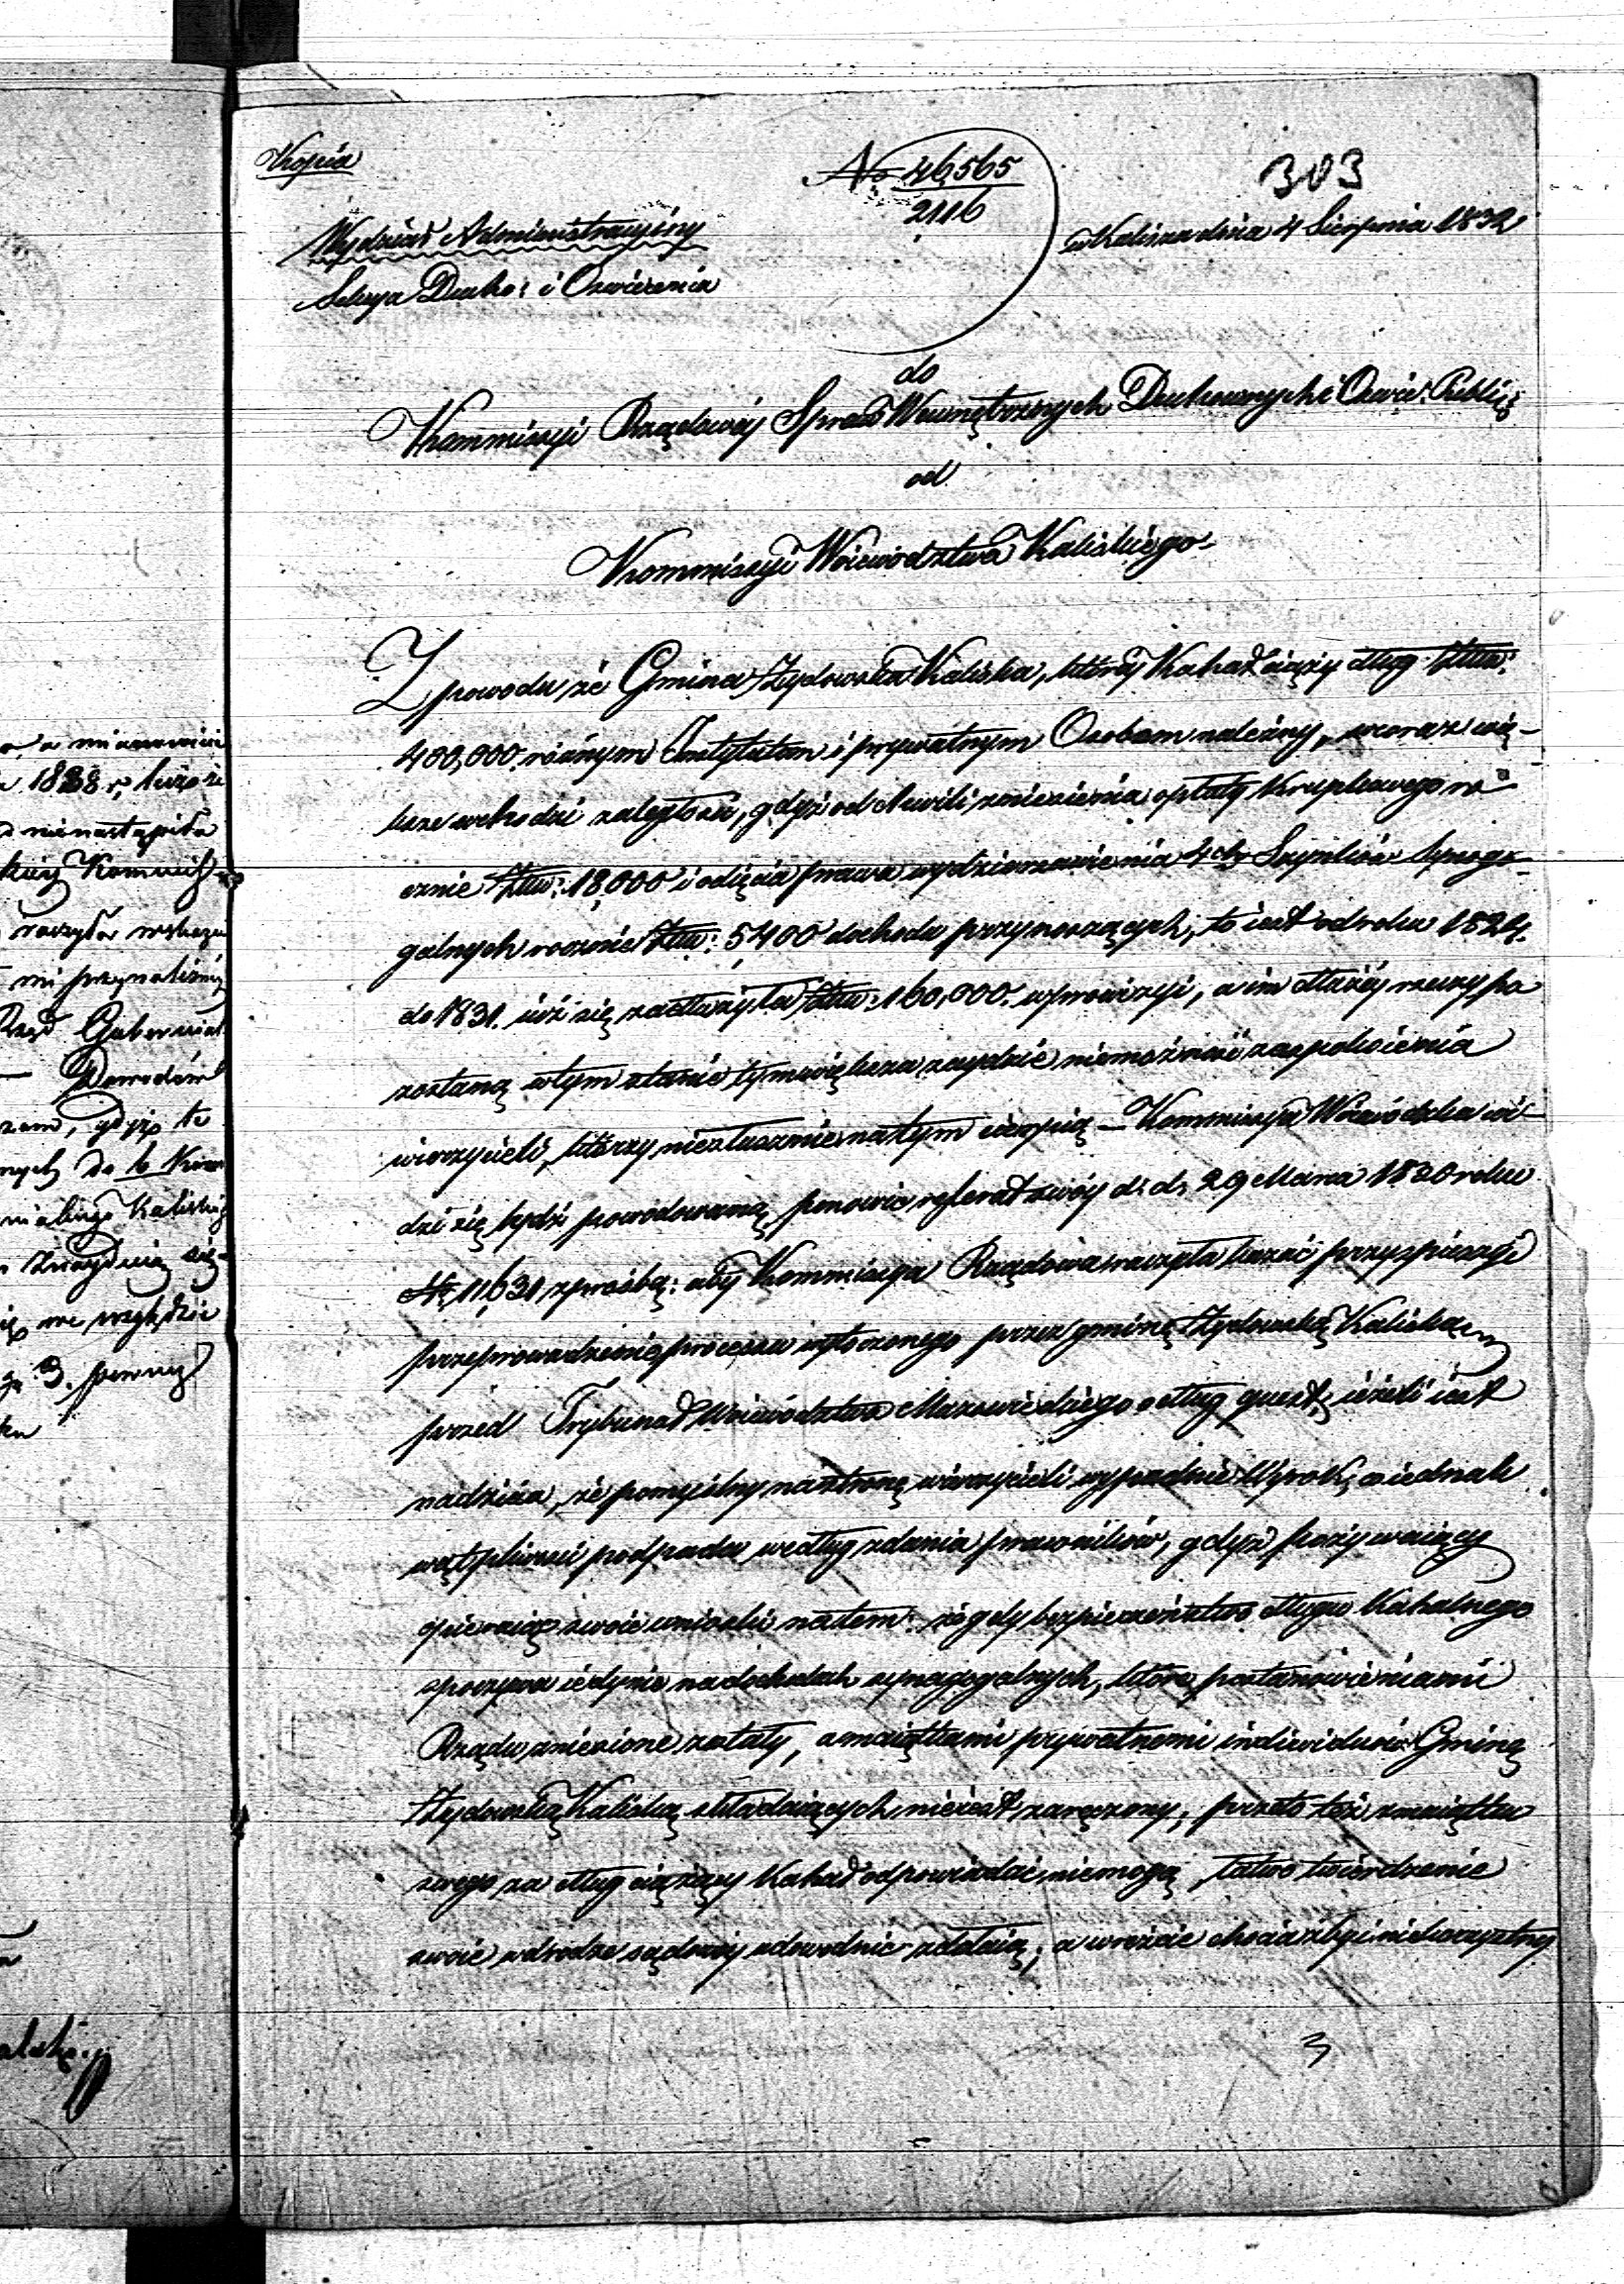 Kopia
No 46565
2116
303
Wydział Administracyiny
w Kaliszu dnia 4 Sierpnia 1832
Sekcya Ducho: i Oswiecenia
do
Kommissyi Rządowéy Spraw Wewnętrznych Duchownych i Oswie: Public:
od
Kommissyi Woiewodztwa Kaliskiego
Z powodu że Gmina Żydowska Kaliska, któréy Kahał ciąży dług
400,000. różnym Instytutom i prywatnym Osobom należny, w coraz wię-
ksze wchodzi zaległości, gdyż od chwili zniesienia opłaty Krupkowego ro-
cznie 18,000 i odięcia prawa wydzierzawienia 4ch Szynków Synago-
galnych rocznie 5400 dochodu przynoszących, to iest od roku 1824.
do 1831. iuż się zadłużyła 160,000. w prowizyi, a im dłużéy rzeczy po
zostaną w tym stanie tym większa zaydzie niemożność zaspokoienia
wierzycieli, którzy niesłusznie na tym cierpią – Kommissya Woiewódzka wi-
dzi się bydź powodowaną, ponowic referat swóy d. d. 29 Marca 1830 roku
No 11631 z prośbą: aby Kommissya Rządowa raczyła kazać przyspieszyć
przeprowadzenie processu wytoczonego przez gminę Żydowską Kaliską
przed Trybunał Woiewództwa Mazowieckiego o dług quest: ieżeli iest
nadzieia, że pomyślny na stronę wierzycieli wypadnie Wyrok, co iednak
wątpliwości podpada według zdania prawników, gdyż pozywaiący
opieraiąc swoie wnioski na tem: że gdy bezpieczeństwo długu Kahalnego
spoczywa iedynie na dochodach synagogalnych, które postanowieniami
Rządu zniesione zostały, a maiątkami prywatnemi indiwiduów Gminę
Żydowską Kaliską składaiących nieiest zaręczony, przeto też z maiątku
swego za dług ciążący Kahał odpowiadać niemogą, łatwo twierdzenie
swoie w drodze sądowéy udowodnic zdołaią; a wreście chociażby niekorzystny
3